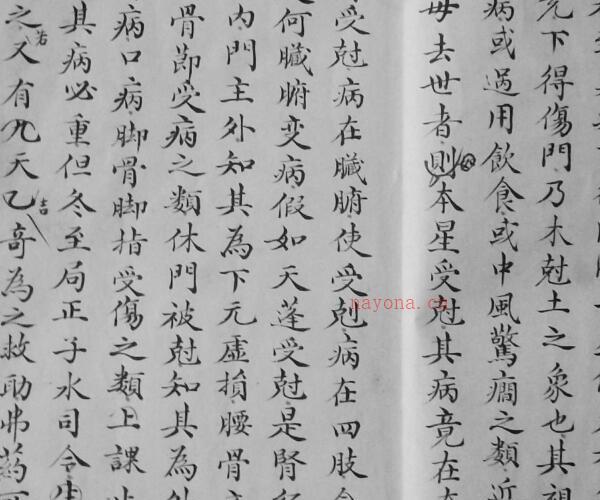 元下得傷門乃木尅土之象也其祖
病或過用飲食或中風驚癇之類近
毋去世者則本星受尅其病竟在
受尅病在臟腑使受尅病在四肢
何臟腑变病假如天蓬受尅是腎
內門主外知其為下元虛損腰骨
骨節受病之類休門被尅知其為外
病口病脚骨脚指受傷之類上課
其病必重但冬至局正子水司令
之又有九天乙奇為之救助弗药
若
吉
nayona.cn